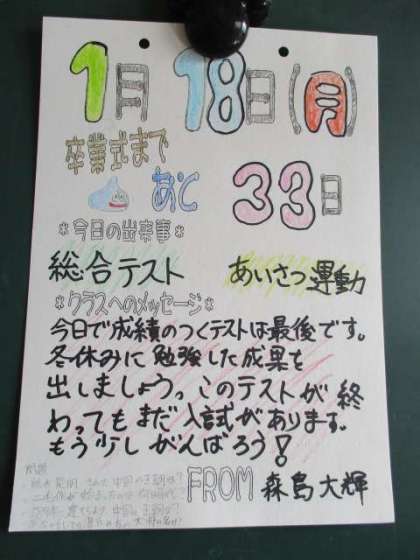 1月18日(月)
卒業式まで
あと 33日
*今日の出来事*
総合テスト あいさつ運動
*クラスへのメッセージ*
今日で成績のつくテストは最後です。
冬休みに勉強した成果を
出しましょうっこのテストが終
わってもまだ入試があります。
もう少しがんばろう!
FROM 森島大輝